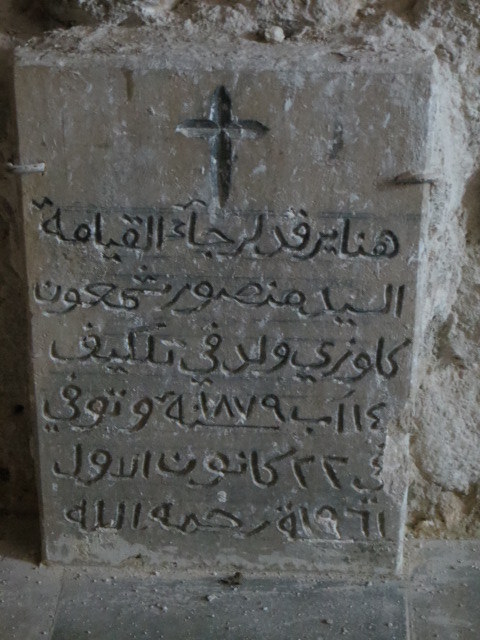 هنا يرقد برجاء القيامة
السيد منصور شمعون
كاوزي ولد في تلكيف
١٤ آب سنة ١٨٧٩ وتوفي
في ٢٢ كانون الاول
١٩٦١ رحمه الله